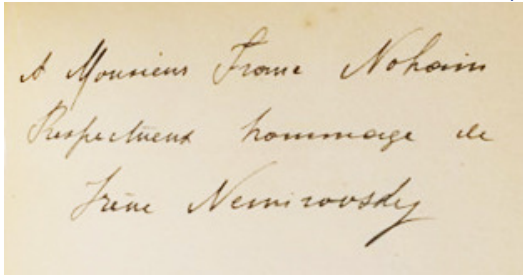 A Monsieur Franc Nohain
Respectueux hommage de
Irène Nemirovsky